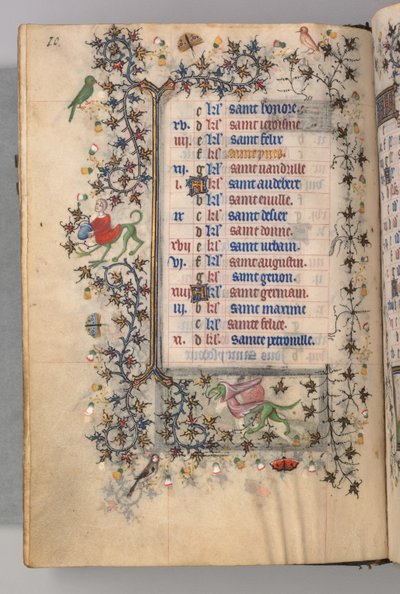 10.
c kl saint honore.
xv. d kl saint
iiij. e kl saint felix
f kl saint
vij. g kl saint uandrille
i. A kl saint audebert
b kl saint
ix c kl saint desier
d kl saint donne.
xvij e kl saint urbain.
vi. f kl saint augustin.
g kl saint
xiiij A kl saint germain.
iij. b kl saint maxime
c kl saint felice.
xi. d kl sainte petronille.